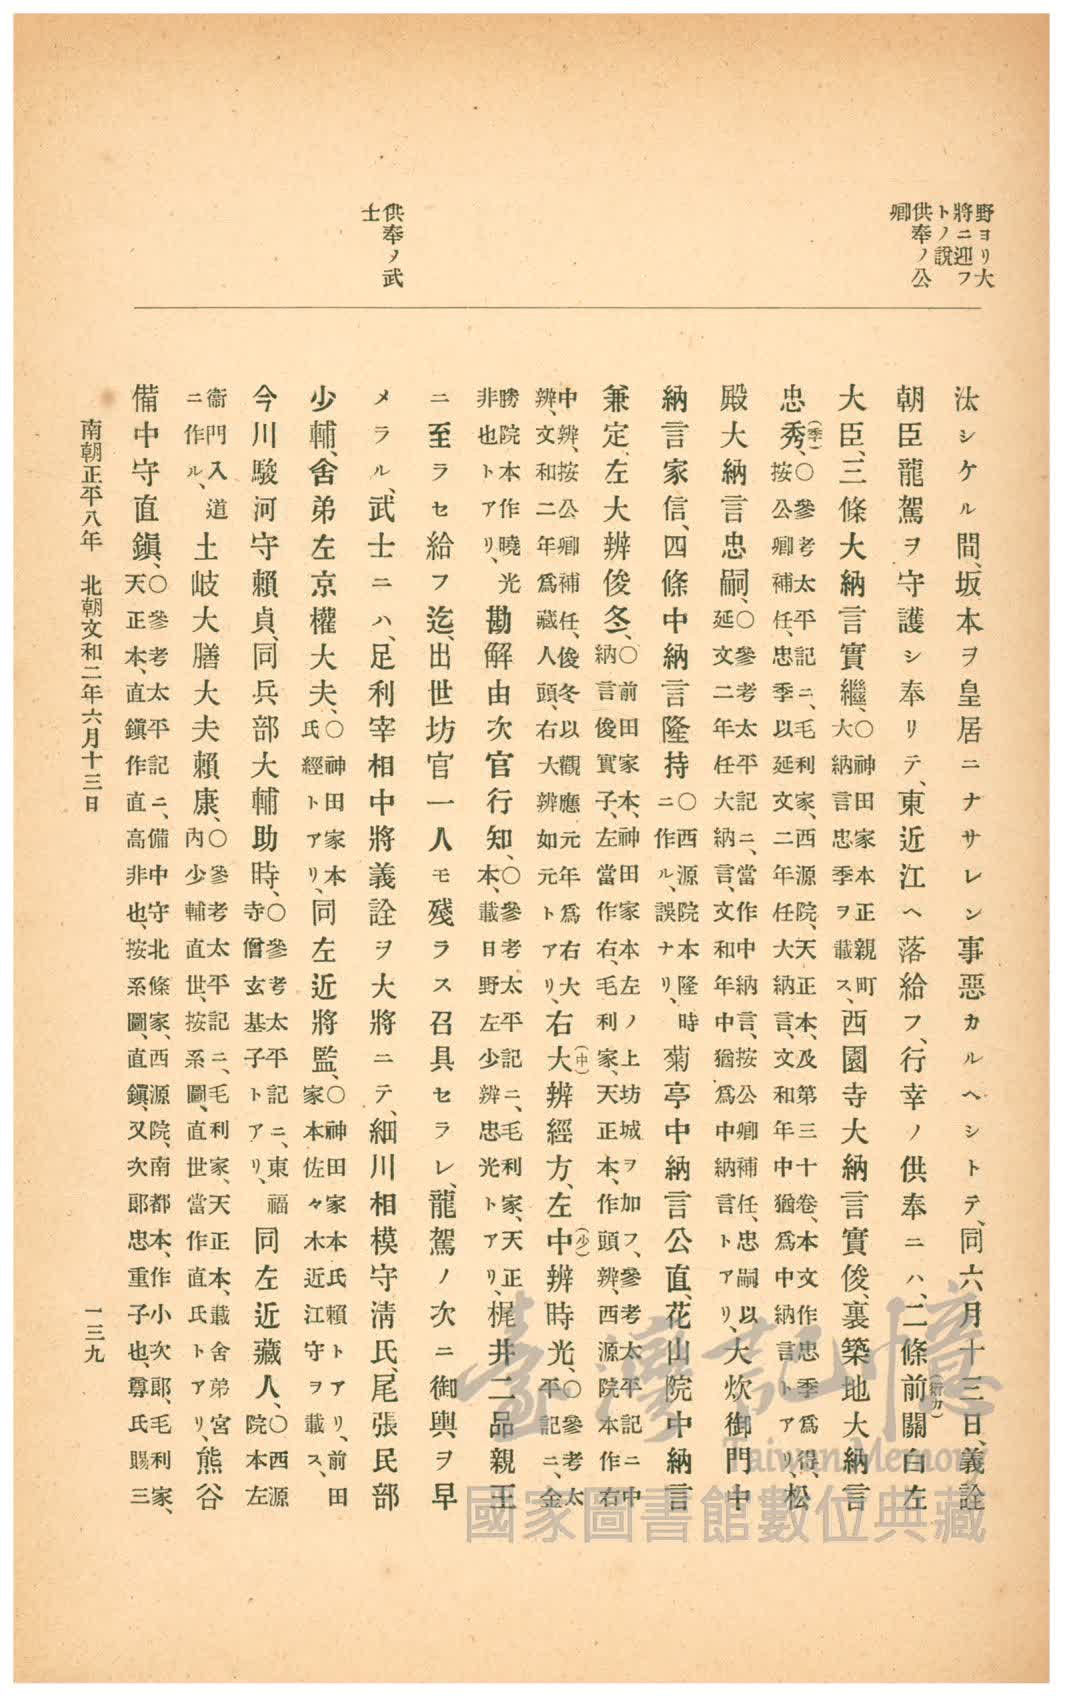 野ヨリ大
將ニ迎フ
トノ說
供奉ノ公
卿
供奉ノ武
士
汰シケル間、坂本ヲ皇居ニナサレン事惡カルヘシトテ、同六月十三日、義詮
朝臣龍駕ヲ守護シ奉リテ、東近江ヘ落給フ、行幸ノ供奉ニハ、二條前關白左
大臣、三條大納言實繼、○神田家本正親町大納言忠季ヲ載ス、西園寺大納言實俊、裏築地大納言
忠秀、(季)○參考太平記ニ、毛利家、西源院、天正本、及第三十卷、本文作忠季爲得、按公卿補任、忠季以延文二年任大納言、文和年中猶爲中納言トアリ、松
殿大納言忠嗣、○參考太平記ニ、當作中納言、按公卿補任、忠嗣以延文二年任大納言、文和年中猶爲中納言トアリ、大炊御門中
納言家信、四條中納言隆持○西源院本隆時ニ作ル、誤ナリ、菊亭中納言公直、花山院中納言
兼定、左大辨俊冬、○前田家本、神田家本左ノ上坊城ヲ加フ、參考太平記ニ中納言俊實子、左當作右、毛利家、天正本、作頭辨、西源院本作右
中辨、按公卿補任、俊冬以觀應元年爲右大辨、文和二年爲藏人頭、右大辨如元トアリ、右大(中)辨經方、左中(少)辨時光、○參考太平記ニ、金
勝院本作曉光非也トアリ、勘解由次官行知、○參考太平記ニ、毛利家、天正本、載日野左少辨忠光トアリ、梶井二品親王
ニ至ラセ給フ迄、出世坊官一人モ殘ラス召具セラレ、龍駕ノ次ニ御輿ヲ早
メラル、武士ニハ、足利宰相中將義詮ヲ大將ニテ、細川相模守淸氏、尾張民部
少輔、舍弟左京權大夫、○神田家本氏經トアリ、同左近將監、○神田家本氏賴トアリ、前田家本佐々木近江守ヲ載ス、
今川駿河守賴貞、同兵部大輔助時、○參考太平記ニ、東福寺僧玄基子トアリ、同左近藏人、○西源院本左
衞門入道ニ作ル、土岐大膳大夫賴康、○參考太平記ニ、毛利家、天正本、載舍弟宮內少輔直世、按系圖、直世當作直氏トアリ、熊谷
備中守直鎭、○參考太平記ニ、備中守北條家、西源院、南都本、作小次郎、毛利家、天正本、直鎭作直高非也、按系圖、直鎭、又次郎忠重子也、尊氏賜三
南朝正平八年 北朝文和二年六月十三日
一三九
臺灣記憶
Taiwan Memory
國家圖書館數位典藏